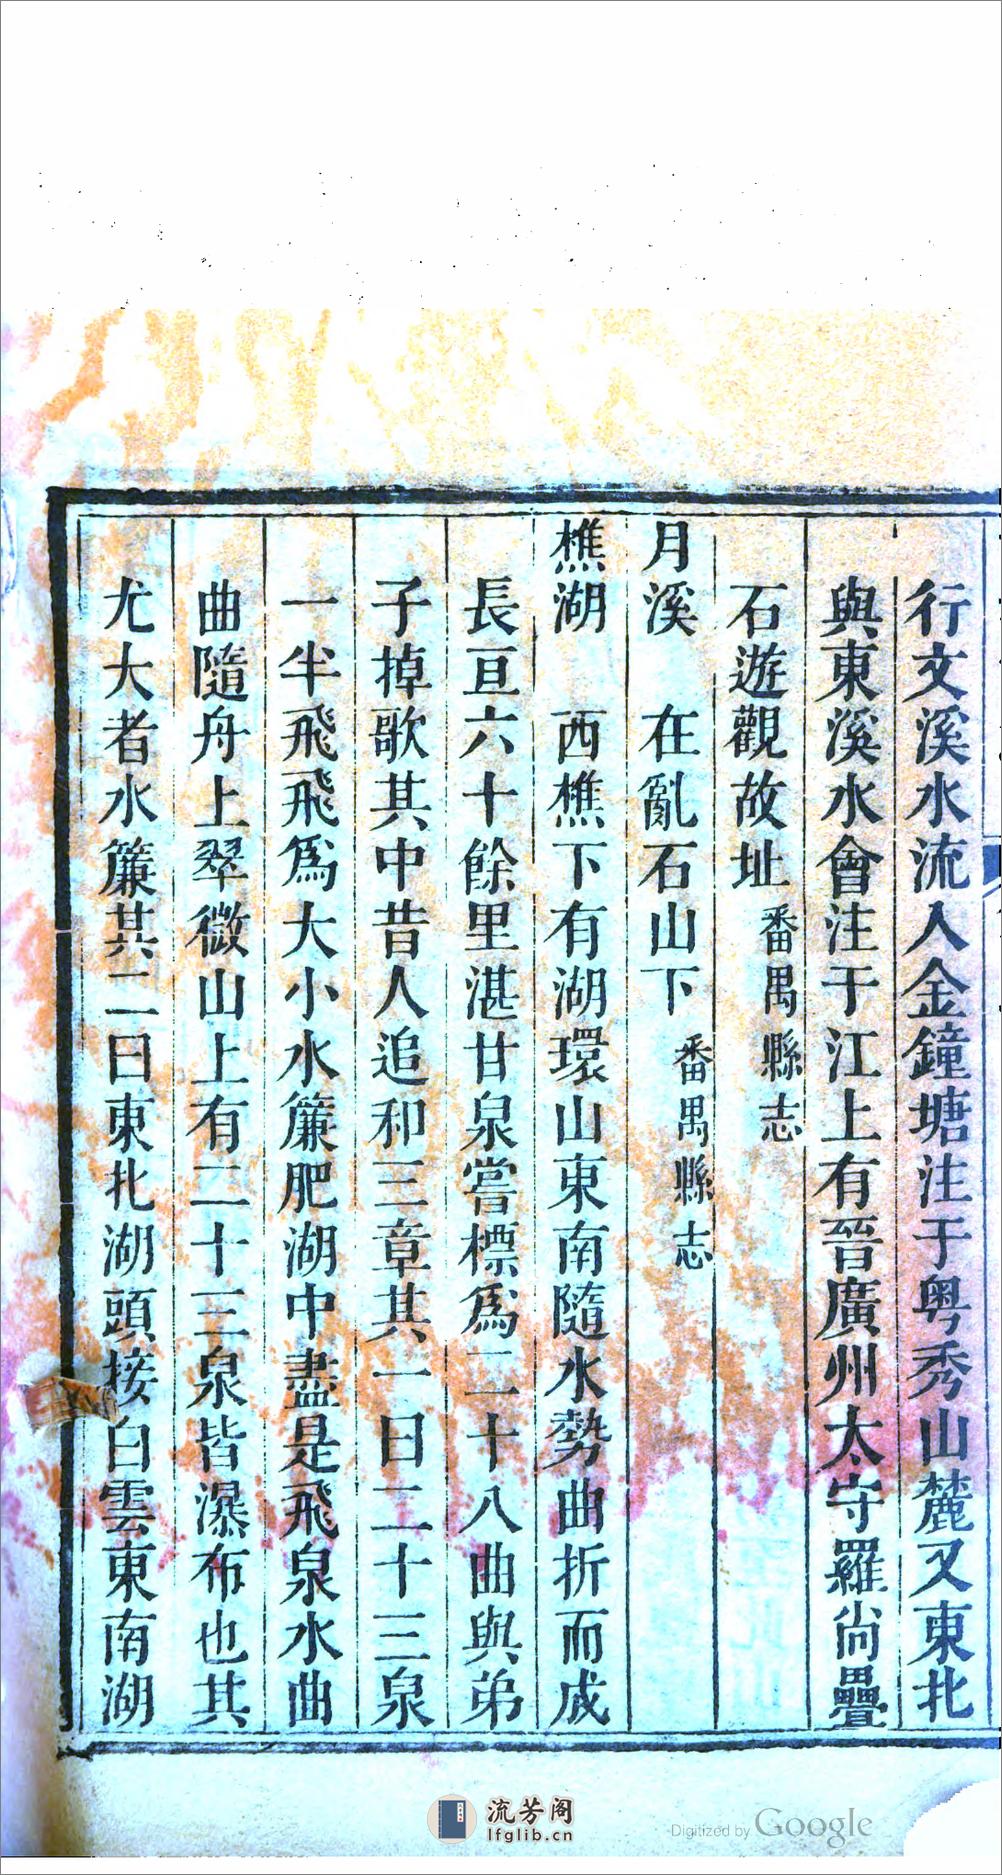 行文溪水流入金鐘塘注于粤秀山麓又東北
與東溪水會注于江上有晉廣州太守羅尙疊
石遊觀故址番禺縣志
月溪　在亂石山下番禺縣志
樵湖　西樵下有湖環山東南隨水勢曲折而成
長亘六十餘里湛甘泉嘗標爲二十八曲與弟
子掉歌其中昔人追和三章其一曰二十三泉
一半飛飛爲大小水簾肥湖中盡是飛泉水曲
曲隨舟上翠微山上有二十三泉皆瀑布也其
尤大者水簾其二曰東北湖頭接白雲東南湖
流芳阁
lfglib.cn
Digitized by Google